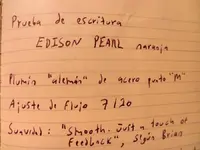 Prueba de escritura
EDISON PEARL naranja
Plumín "alemán" de acero punto "M"
Ajuste de flujo 7/20
Suavidad: "Smooth. Just a touch of
Feedback", según Brian